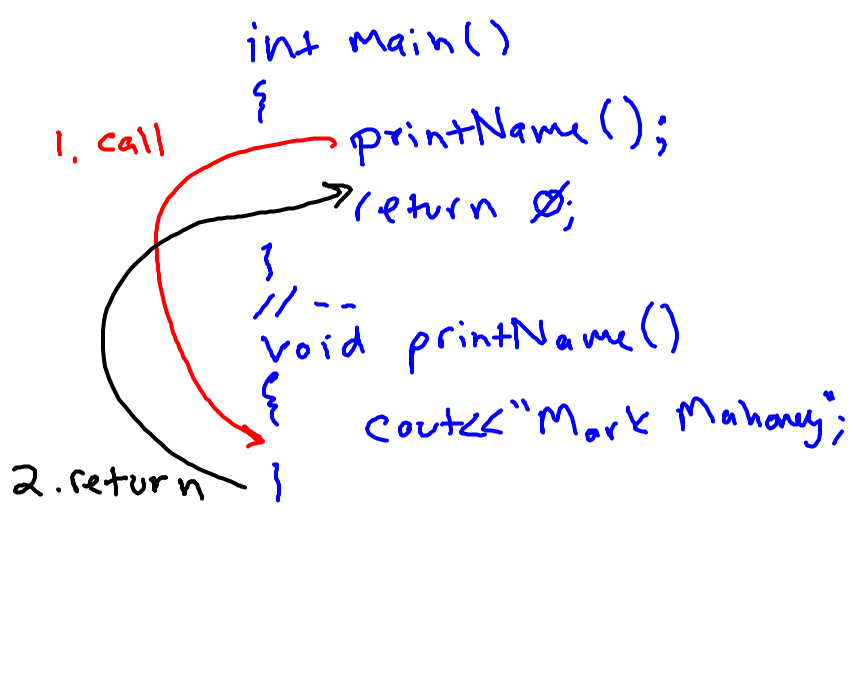 int main()
{
1. call
printName();
return 0;
}
// --
void printName()
{
cout<<"Mark Mahoney";
2. return
}